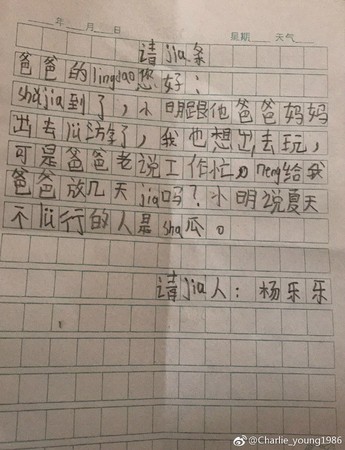 年 月 日 星期 天气
请jia条
爸爸的lingdao您好：
shǔjia到了，小明跟他爸爸妈妈
出去lü游了，我也想出去玩，
可是爸爸老说工作忙。neng给我
爸爸放几天jia吗？小明说夏天
不lü行的人是sha瓜。
请jia人：杨乐乐
@Charlie_young1986